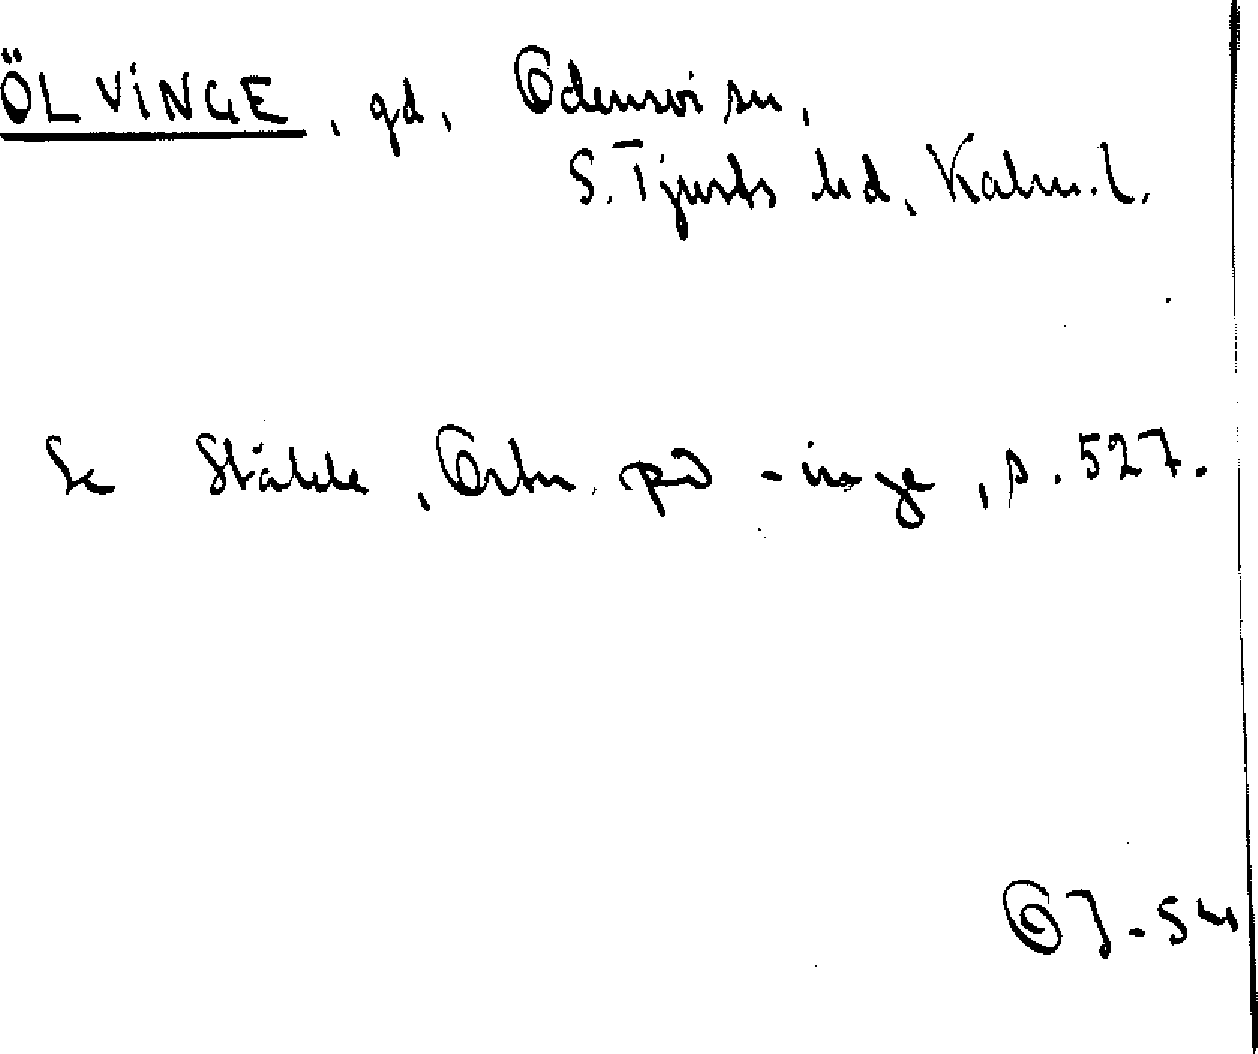 ÖLVINGE, gd, Odensvi sn,
S. Tjusts hd, Kalm. l.
Se Ståhle, Ortn. på -inge, s. 527.
OJ-54